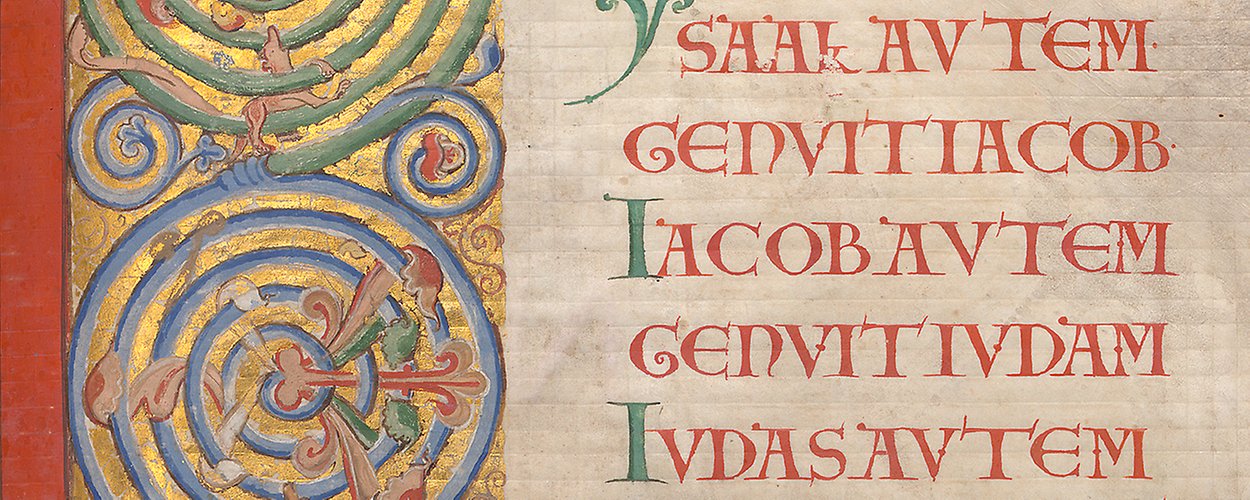 YSAAk AVTEM·
GENVIT IACOB·
IACOB AVTEM
GENVIT IVDAM
IVDAS AVTEM